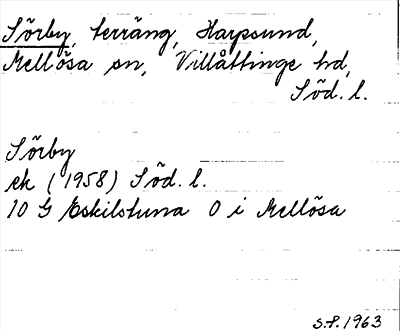 Sörby, terräng, Harpsund,
Mellösa sn, Villåttinge hd,
Söd. l.
Sörby
ek (1958) Söd. l.
10 G Eskilstuna O i Mellösa
S.F. 1963